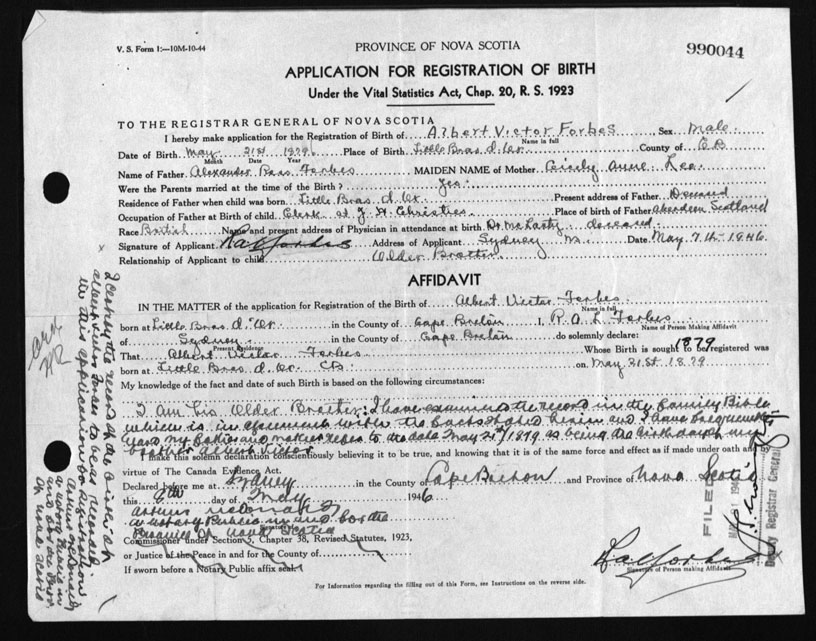 V. S. Form 1:—10M-10-44
PROVINCE OF NOVA SCOTIA
990044
APPLICATION FOR REGISTRATION OF BIRTH
Under the Vital Statistics Act, Chap. 20, R. S. 1923
TO THE REGISTRAR GENERAL OF NOVA SCOTIA
I hereby make application for the Registration of Birth of Albert Victor Forbes, Sex Male.
Name in full
Date of Birth May 21st 1879 Place of Birth Little Bras d'Or County of C B
Month Date Year
Name of Father Alexander Forbes MAIDEN NAME of Mother Anne Lee
Were the Parents married at the time of the Birth? Yes
Residence of Father when child was born, Little Bras d'Or. Present address of Father Deceased
Occupation of Father at Birth of child Clerk at J. Christies Place of birth of Father Aberdeen Scotland
Race British Name and present address of Physician in attendance at birth Dr. deceased
Signature of Applicant Address of Applicant Sydney Date May 7th 1946
Relationship of Applicant to child Older Brother
AFFIDAVIT
IN THE MATTER of the application for Registration of the Birth of Albert Victor Forbes
Name in full
born at Little Bras d'Or in the County of Cape Breton I, R. A. L. Forbes
Name of Person Making Affidavit
of Sydney in the County of Cape Breton do solemnly declare:
Present Residence
1879
That Albert Victor Forbes Whose Birth is sought to be registered was
born at Little Bras d'Or CB on May 21st 1879
My knowledge of the fact and date of such Birth is based on the following circumstances:
I am his Older Brother: I have examined the record in the family Bible
which is in agreement with the facts stated herein and I have frequently
heard my father and mother refer to the date May 21st 1879 as being the birthday of my
brother Albert Victor
I make this solemn declaration conscientiously believing it to be true, and knowing that it is of the same force and effect as if made under oath and by
virtue of The Canada Evidence Act.
Declared before me at Sydney in the County of Cape Breton and Province of Nova Scotia
this 8th day of May 1946
a Notary Public in and for the
Province of Nova Scotia
Commissioner under Section 5, Chapter 38, Revised Statutes, 1923,
or Justice of the Peace in and for the County of
If sworn before a Notary Public affix seal.
Signature of Person making Affidavit
For Information regarding the filling out of this Form, see Instructions on the reverse side.
FILED
Deputy Registrar General
I certify the record of the birth of
Albert Victor Forbes to be as recorded
in this application for Registration
a Notary Public in
and for the Province
of Nova Scotia